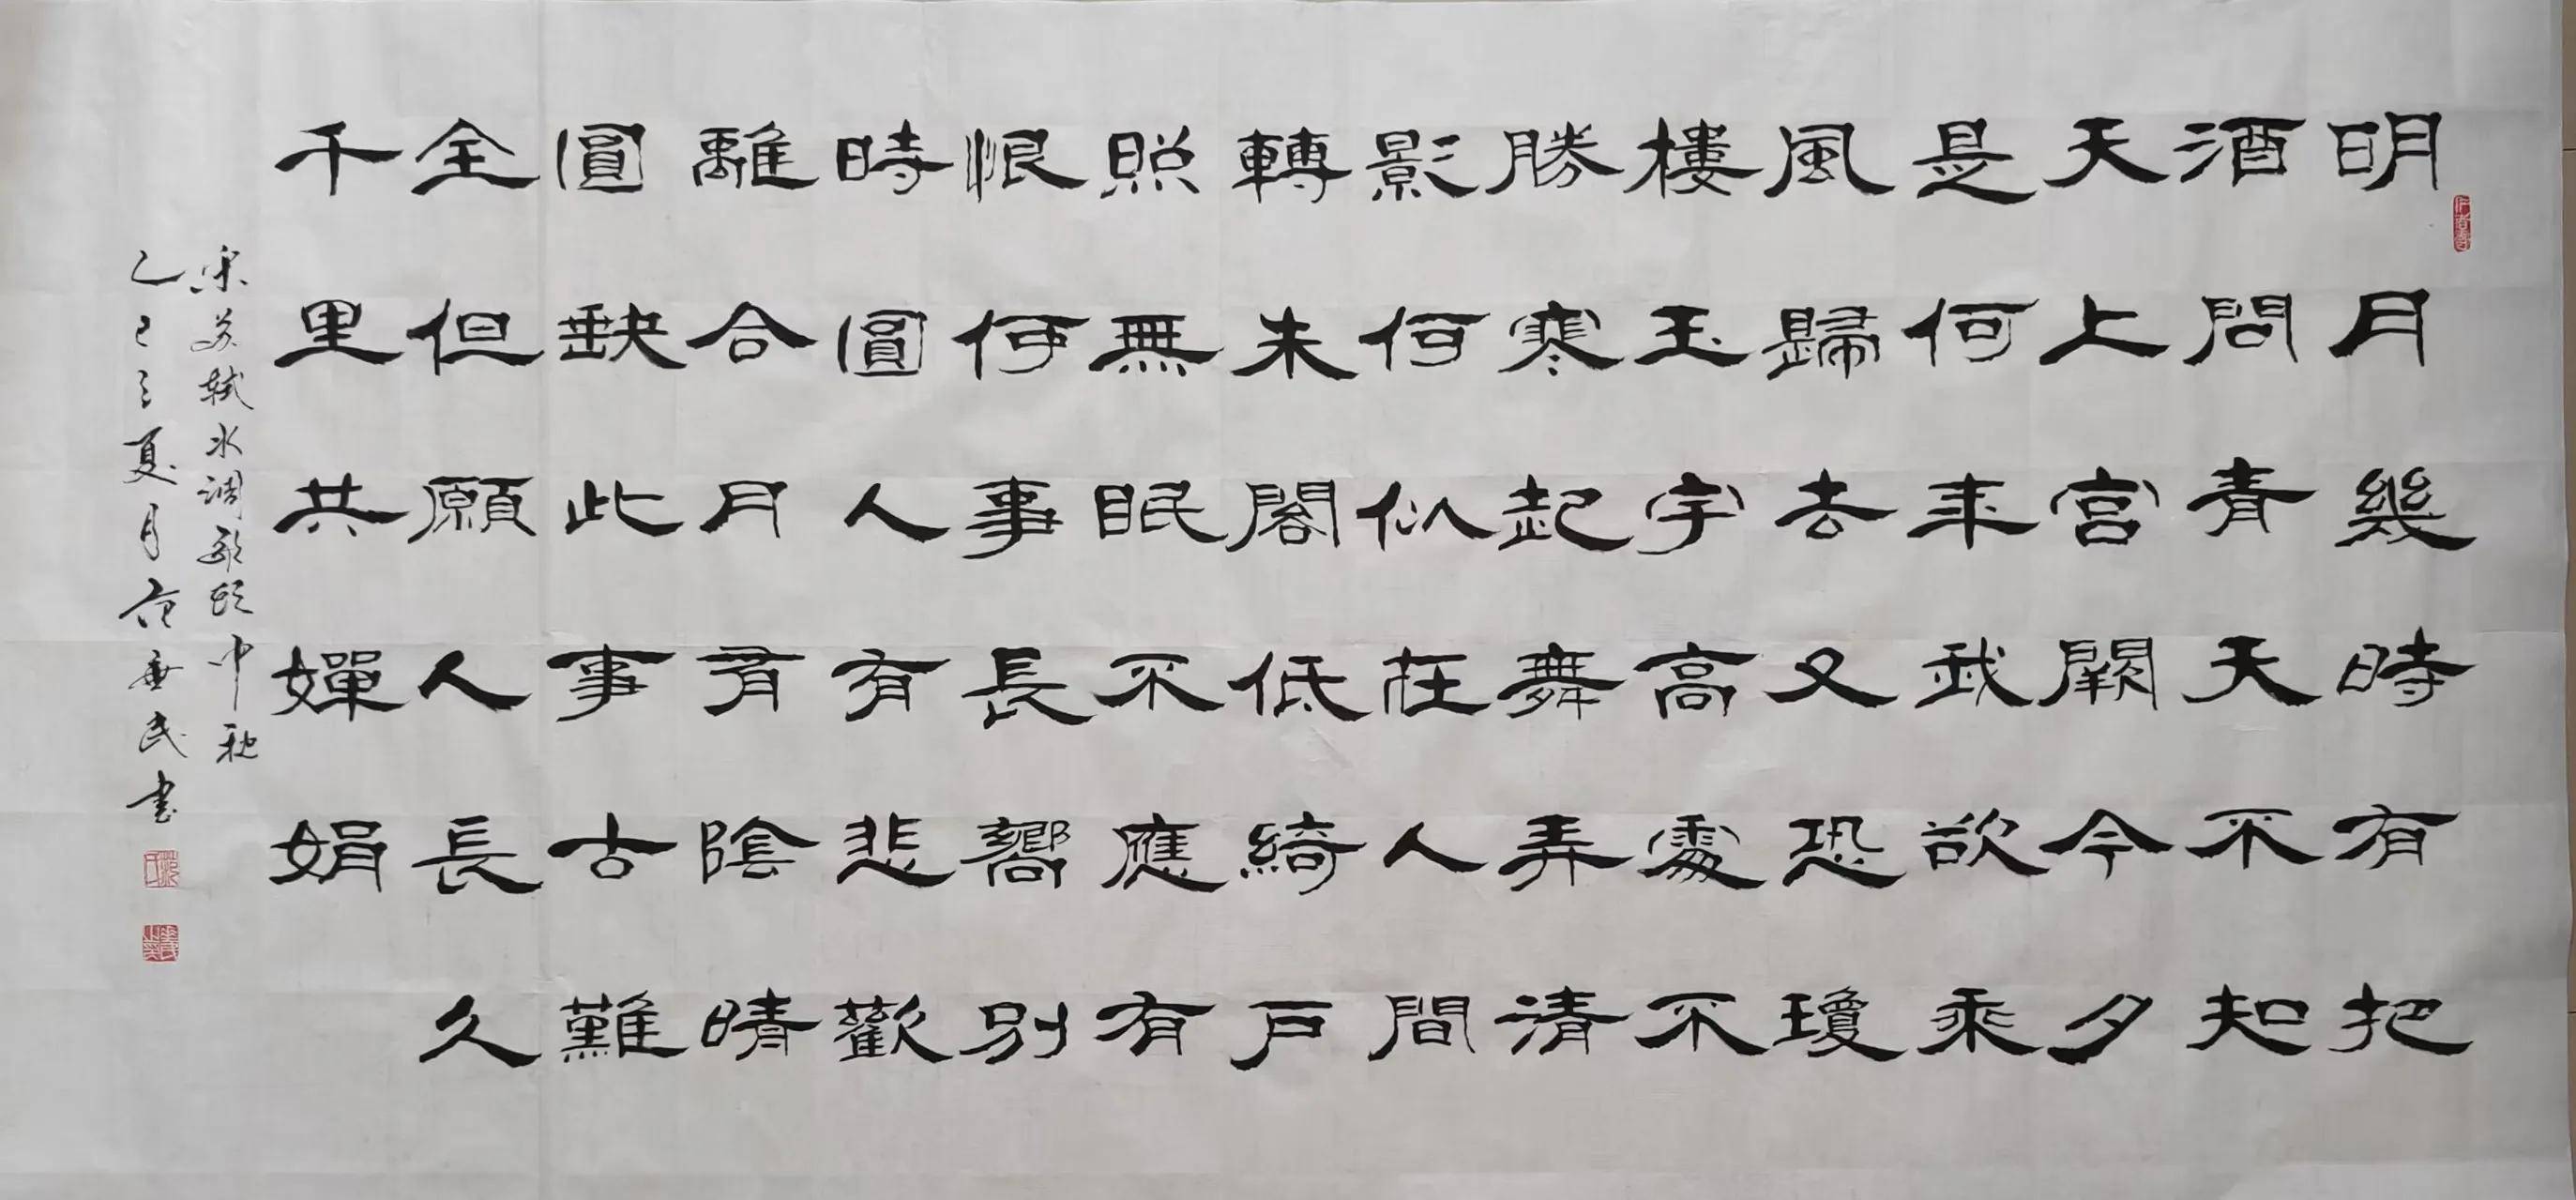 明月幾時有把
酒問青天不知
天上宮闕今夕
是何年我欲乘
風歸去又恐瓊
樓玉宇高處不
勝寒起舞弄清
影何似在人間
轉朱閣低綺戶
照無眠不應有
恨何事長嚮別
時圓人有悲歡
離合月有陰晴
圓缺此事古難
全但願人長久
千里共嬋娟
宋苏轼水调歌頭中秋
乙巳之夏月范民书